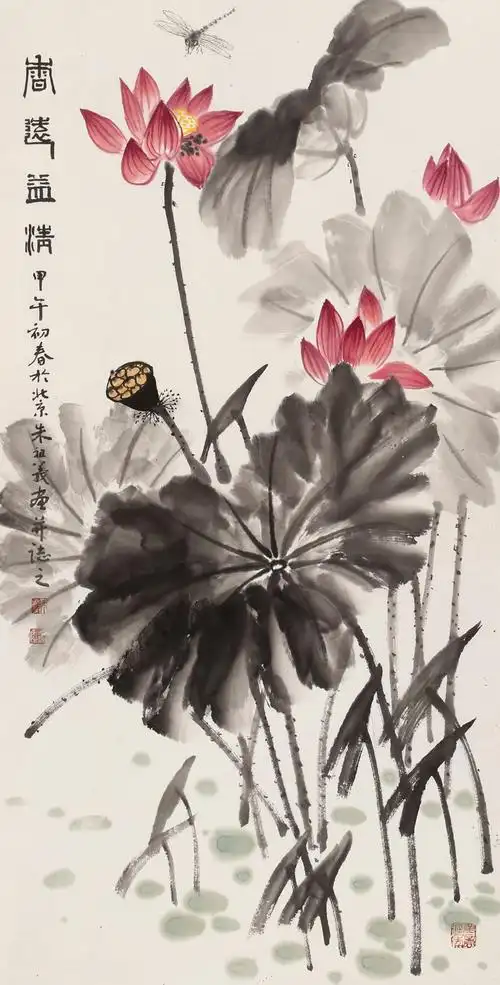 香遠益清
甲午初春於北京朱祖義畫并誌之